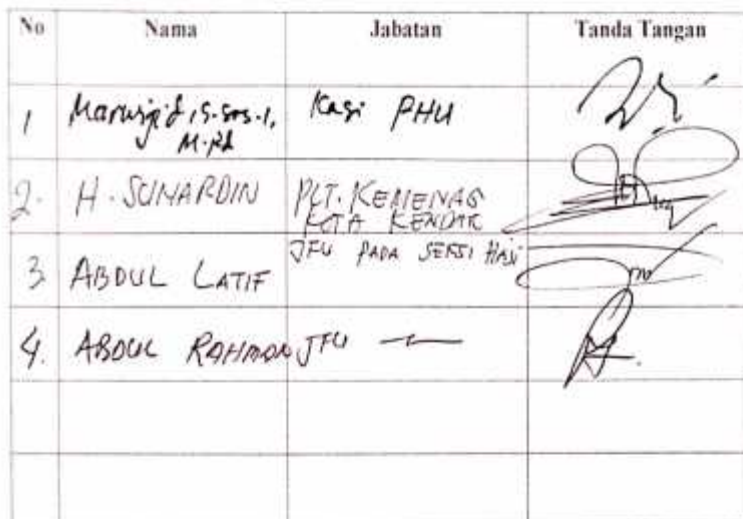 No Nama Jabatan Tanda Tangan
1 S.Sos.I, Kasi PHU
M.Pd
2. H. SUNARDIN PLT. KEMENAG
KOTA KENDARI
3 ABDUL LATIF JFU PADA SEKSI HAJI
4. ABDUL RAHMAN JFU